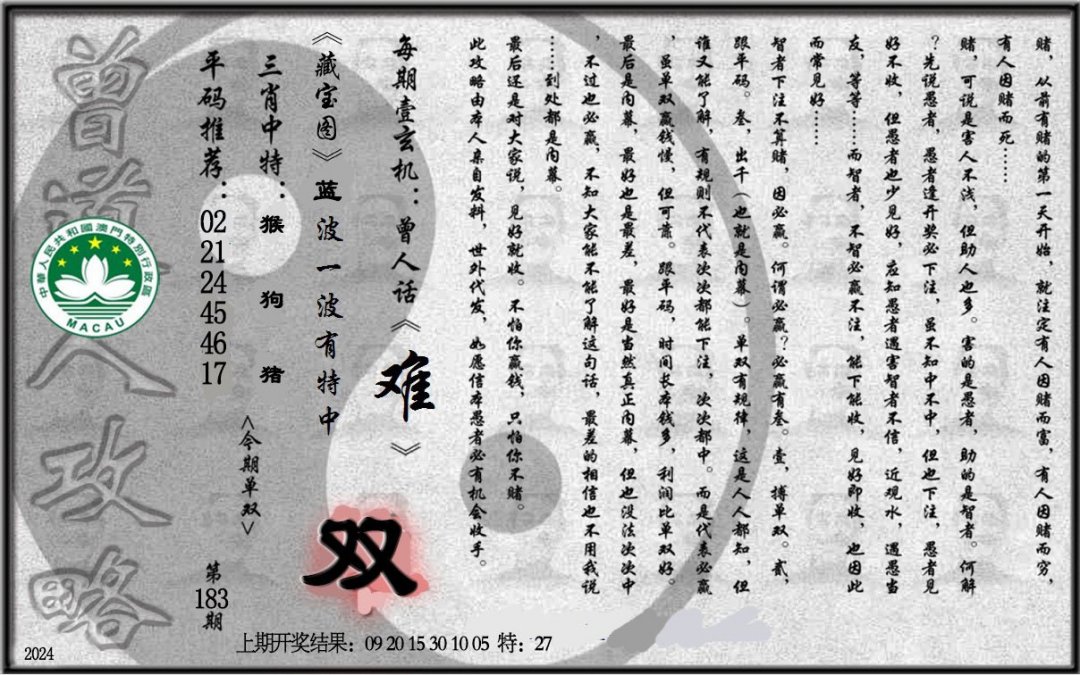 赌，从前有赌的第一天开始，就注定有人因赌而富，有人因赌而穷，
有人因赌而死……
赌，可说是害人不浅，但助人也多。害的是愚者，助的是智者。何解
？先说愚者，愚者逢开奖必下注，虽不知中不中，但也下注，愚者见
好不收，但愚者也少见好，应知愚者遇害智者不信，近观水，遇愚当
友，等等……而智者，不智必赢不注，能下能收，见好即收，也因此
而常见好……
智者下注不算赌，因必赢。何谓必赢？必赢有叁。壹，搏单双。贰，
跟平码。叁，出千（也就是内幕）。单双有规律，这是人人都知，但
谁又能了解，有规则不代表次次都能下注，次次都中。而是代表必赢
，虽单双赢钱慢，但可靠。跟平码，时间长本钱多，利润比单双好。
最后是内幕，最好也是最差，最好是当然真正内幕，但也没法次次中
，不过也必赢，不知大家能不能了解这句话，最差的相信也不用我说
……到处都是内幕。
最后还是对大家说，见好就收。不怕你赢钱，只怕你不赌。
此攻略由本人亲自发料，世外代发，如愿信本愚者必有机会收手。
每期壹玄机：曾人话《难》
《藏宝图》蓝波一波有特中
双
三肖中特：猴 狗 猪
<今期单双>
平码推荐：02 21 24 45 46 17
第183期
曾道人攻略
中華人民共和國澳門特別行政區
MACAU
上期开奖结果：09 20 15 30 10 05 特：27
2024